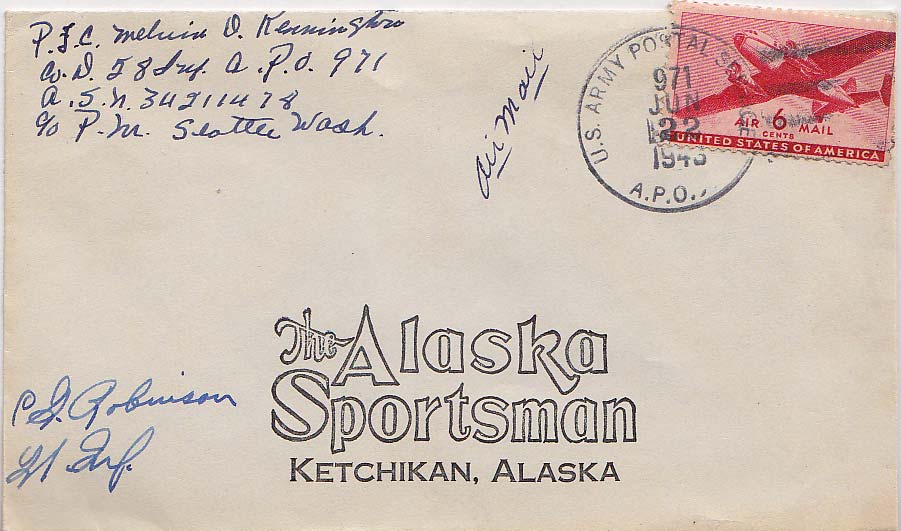 P.F.C. Melvin D. Kennington
Co. D. 58 Inf. A.P.O. 971
A.S.N. 34211478
c/o P.M. Seattle Wash.
air mail
U.S. ARMY POSTAL
971
JUN
22
1943
A.P.O.
AIR 6 MAIL
CENTS
UNITED STATES OF AMERICA
The Alaska
Sportsman
KETCHIKAN, ALASKA
Robinson
Lt Inf.